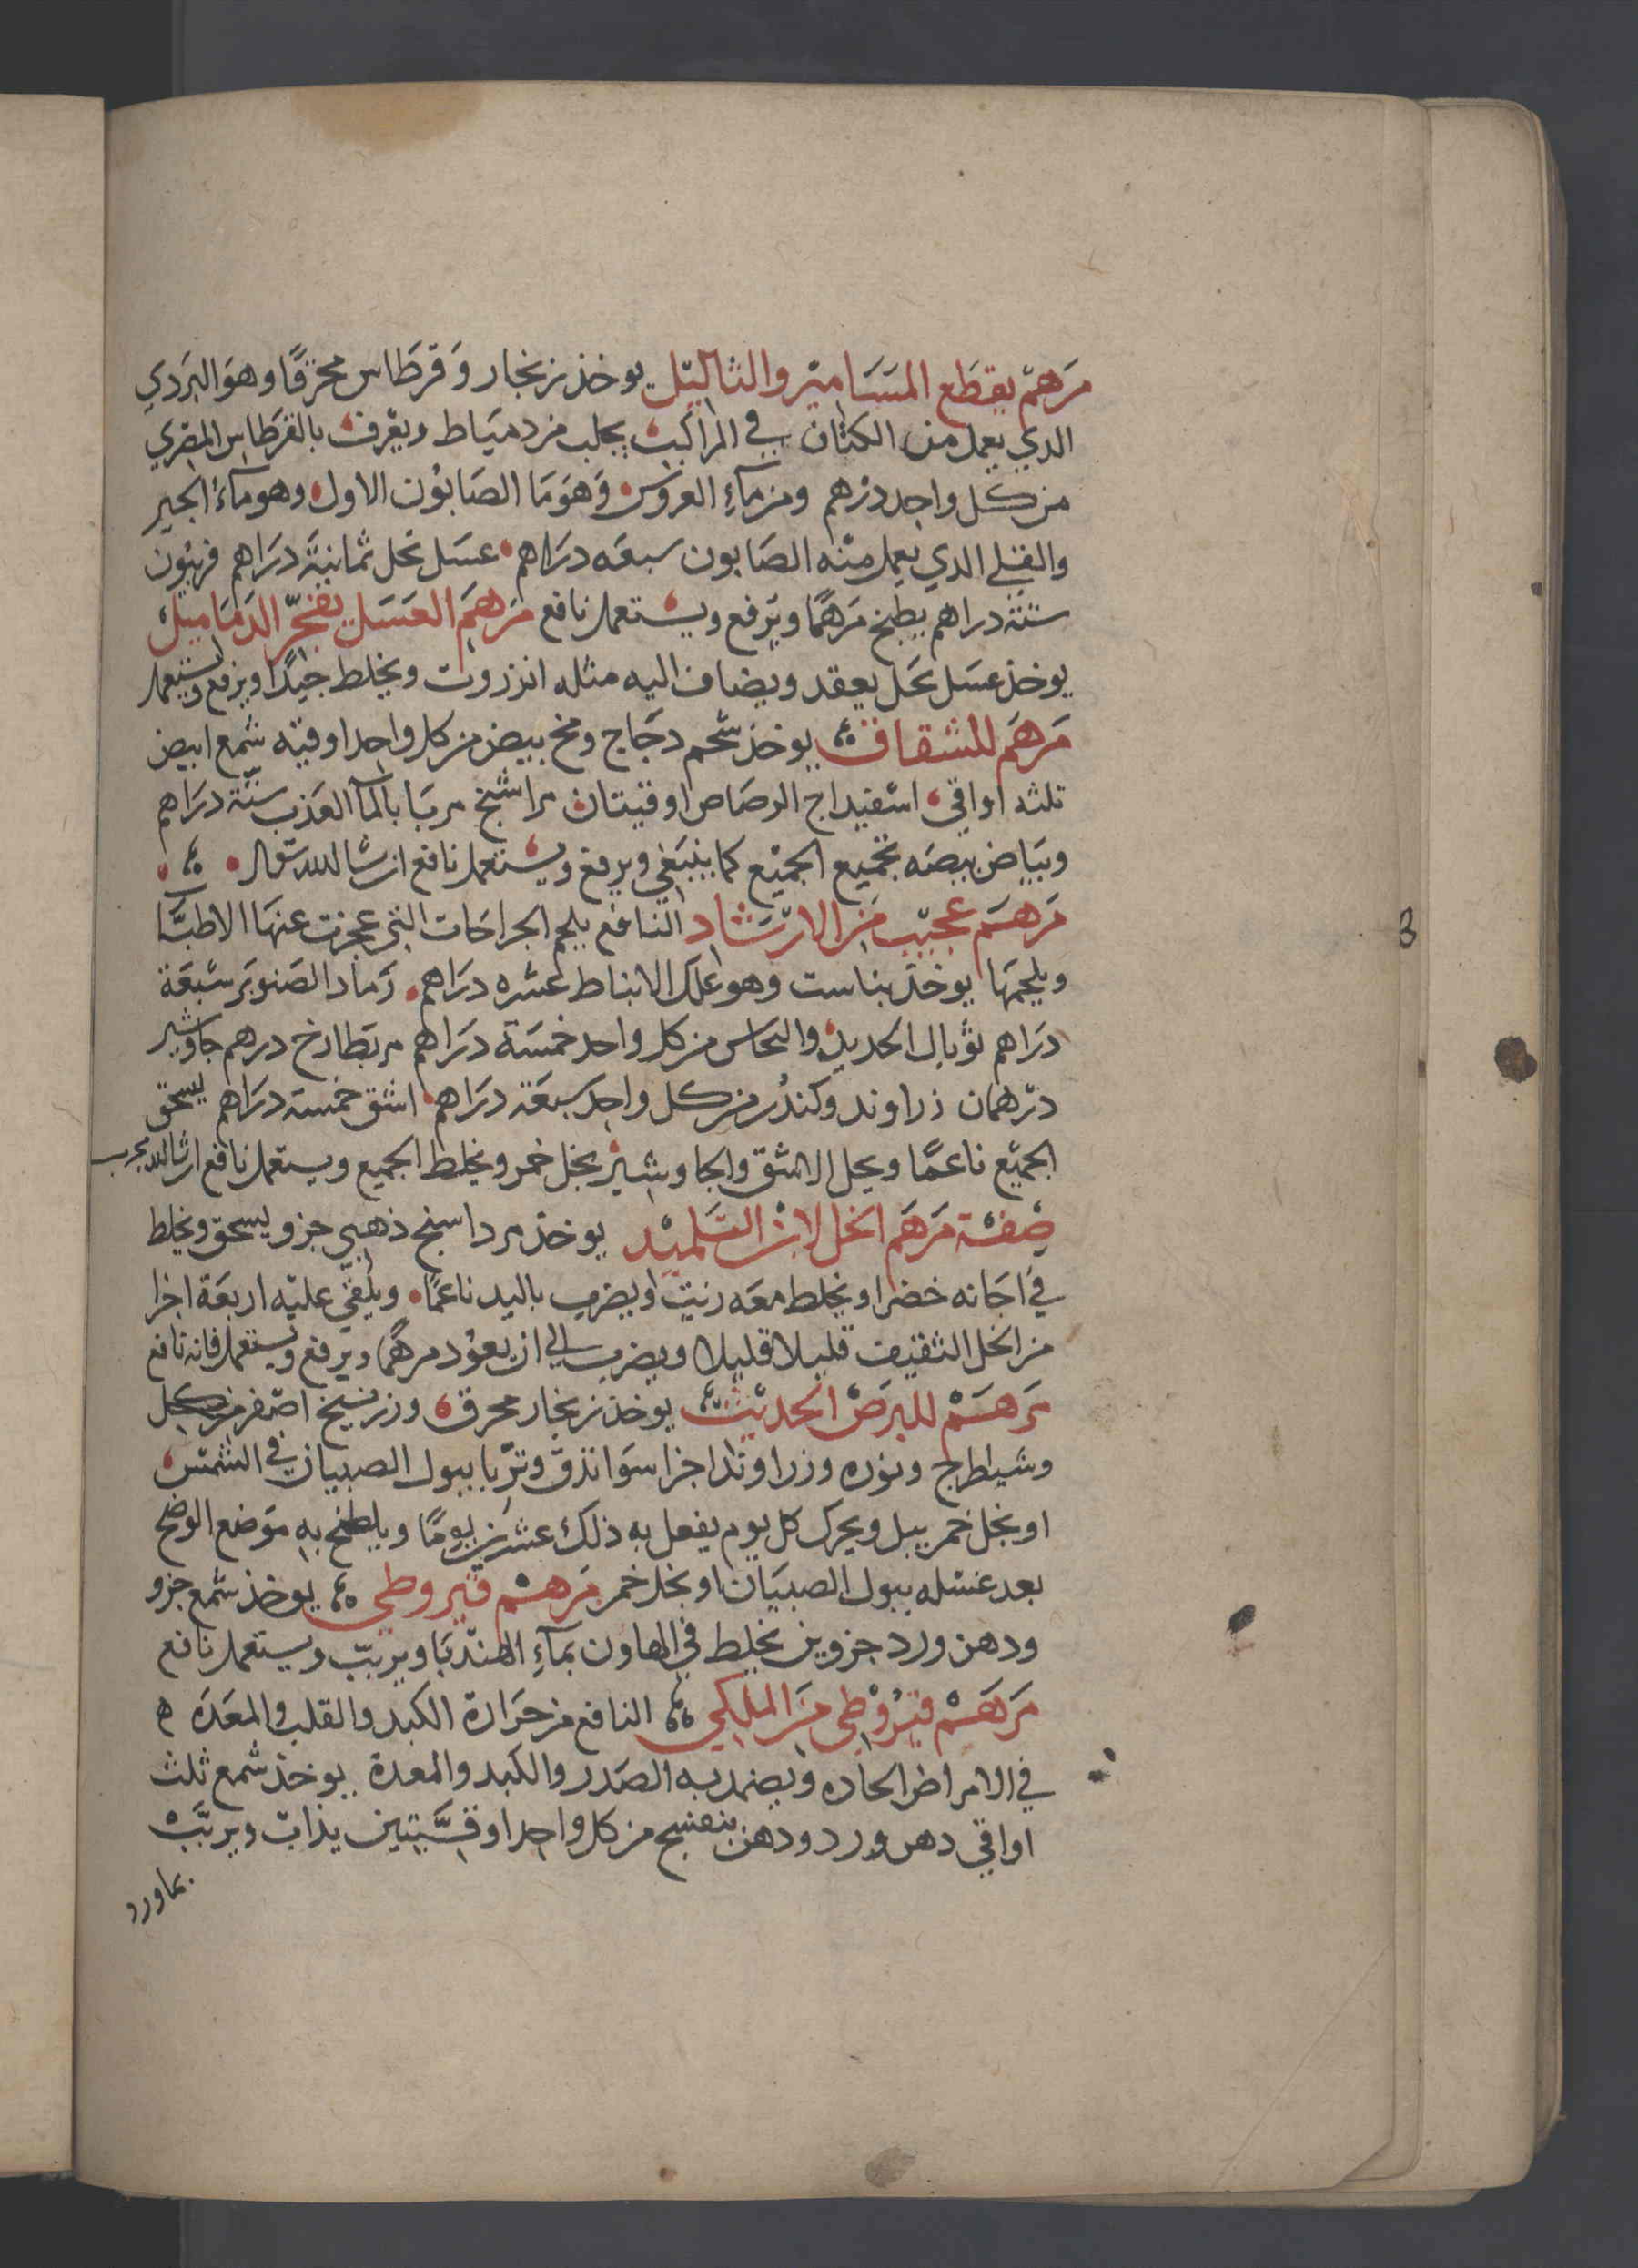 مَرهَمٌ يقطَع المسَسَاميْر والثاليْل يوخذ زنجار وَقرطَاس محرَقًا وهوَ البَردي
الدي يعمل من الكتان في المراكب يجلب من دميَاط ويعْرف بالقرطاس المصري
من كل واحد درْهم ومن مآءِ العروس وَهوَ مَا الصَابُون الاول وهو مآءُ الجير
والقلي الدي يعمل منْه الصَابون سبعَه درَاهم عسَل نحل ثمانيَة درَاهم فربيُون
ستة دراهم يطبخ مَرهمًا ويَرفع ويستعمل نافع مَرهَم العَسَل يفجّر الدمَاميل
يوخذ عسَل نحَل يعقد ويضاف اليه مثله انزروت ويخلط جيّدًا ويرفع ويستعمل
مَرهَم للشقاق يوخذ شحم دجَاج ومخ بيض من كل واحد اوقيه شمع ابيض
ثلثه اواقي اسْفيداج الرصَاص اوقيتان مراشنج مربَا بالمآ العَذب ستة درَاهم
وبيَاض بيضَه تجميع الجميْع كما ينبَغي ويرفع ويستعمل نافع ان شا الله تعَالى
مَرهَم عجيْب مَن الارْشَاد النافع يلحم الجراحَات التي عجزت عنهَا الاطبَّا
ويلحمهَا يوخذ بناست وهو علك الانباط عشره درَاهم رمَاد الصَنوبَر سْبعَة
درَاهم توبال الحديد والنحَاس من كل واحد خمسَة درَاهم مر بطارخ درهم جاوشير
درْهمان زراوند وكندُر من كل واحد سبعَة درَاهم اشق خمسة درَاهم يسحق
الجميْع ناعمًا ويحل الاشق والجاوشيْر بخل خمر ويخلط الجميع ويستعمل نافع ان شا الله مجرب
صْفة مَرهَم الخل لابن التلميْد يوخذ مرداسنج ذهبي جزو يسحق ويخلط
في اجَانه خضرا ويخلط معَه زيت ويضرب باليد ناعمًا ويلقي عليْه اربعَة اجزا
من الخل الثقيف قليلا قليلا ويضرب الى ان يعوُد مرهمًا ويرفع ويستعمل فانه نافع
مَرهَمْ للبرَصْ الحديْث يوخذ زنجار محرق وزرنيخ اصْفر من كل
وشيطرج ونوره وزراوندا اجزا سَوا تدق وترّبا ببول الصبيان في الشمسْ
او بخل خمر يبل ويحرك كل يوم يفعل به ذلك عشريْن يومًا ويلطخ به موَضع الوضح
بعد غسْله ببول الصبيَان او بخل خمر مَرهَم قيْروطي يوخذ شمع جزو
ودهن ورد جزوين يخلط في الهاون بمآءِ الهندْبَا ويربّب ويستعمل نافع
مَرهَمْ قيْرُوْطي مَن الملكي النافع من حَرَارة الكبد والقلب والمعَدَه
في الامراض الحادّه ويضمد به الصَدر والكبد والمعدة يوخذ شمع ثلث
اواقي دهن ورد ودهن بنفسج من كل واحد اوقيَّتين يذابْ ويربَّبْ
بماورد
3